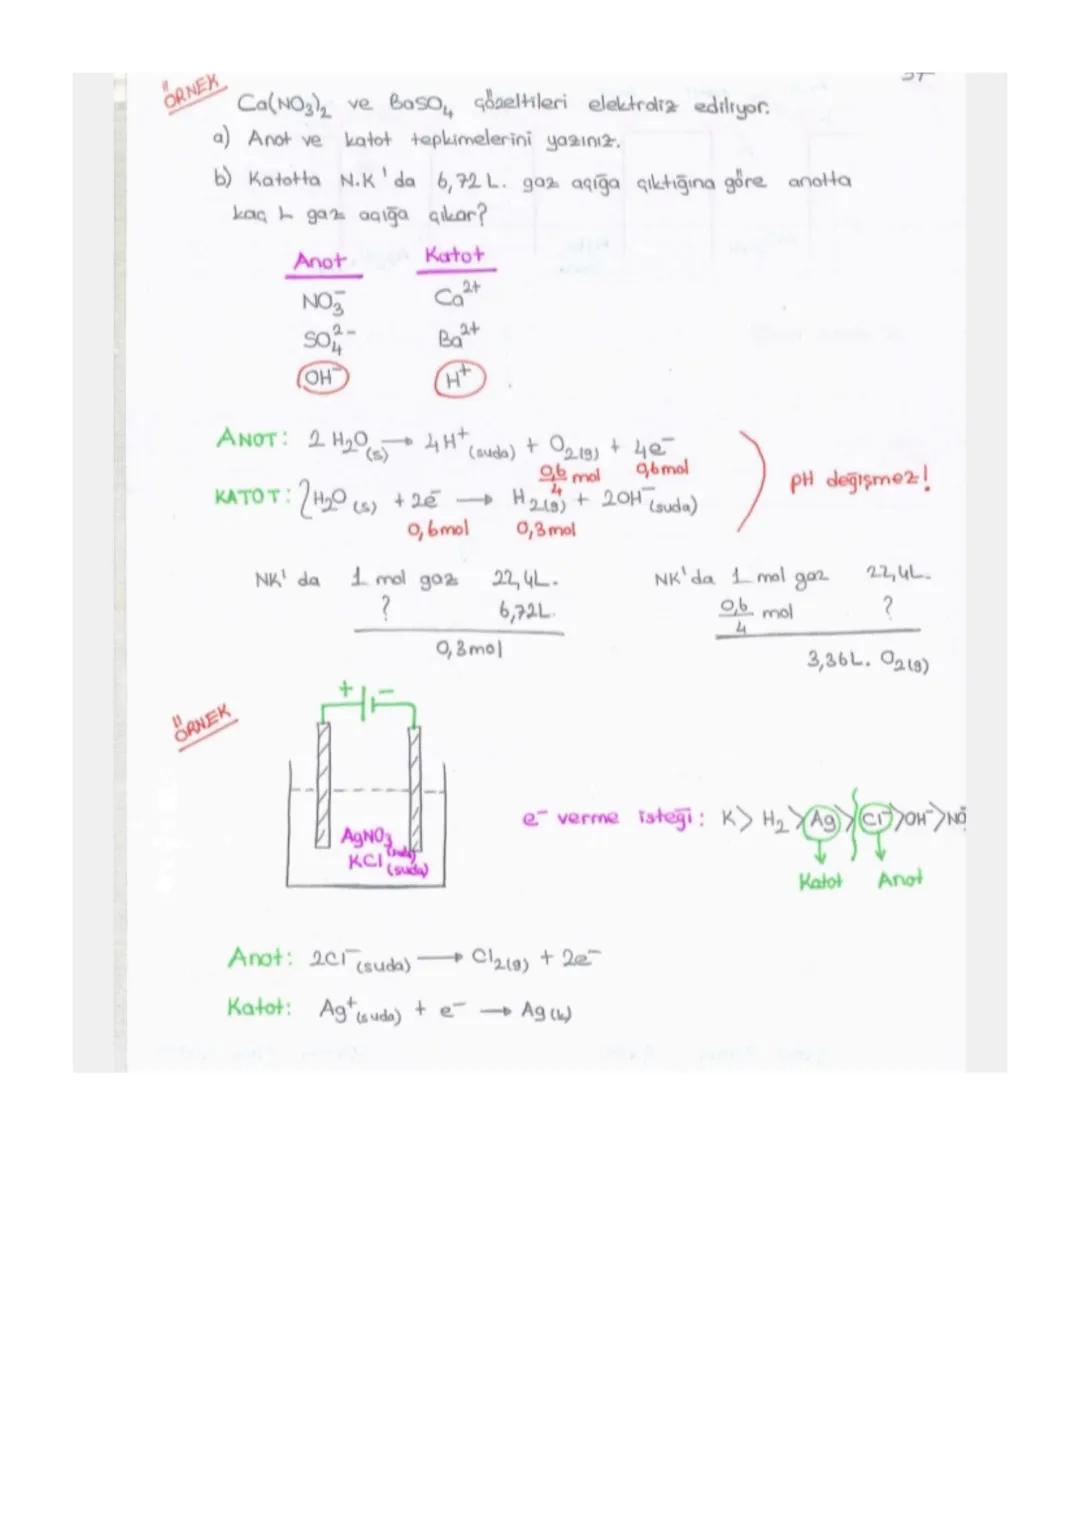 ÖRNEK
Ca(NO₃)₂ ve BaSO₄ çözeltileri elektroliz ediliyor.
a) Anot ve katot tepkimelerini yazınız.
b) Katotta N.K'da 6,72 L. gaz açığa çıktığına göre anotta
kaç L gaz açığa çıkar?
Anot Katot
NO₃⁻ Ca²⁺
SO₄²⁻ Ba²⁺
OH⁻ H⁺
ANOT: 2 H₂O(s) → 4H⁺(suda) + O₂(g) + 4e⁻
0,6/4 mol 0,6mol
pH değişmez!
KATOT: 2H₂O(s) + 2e⁻ → H₂(g) + 2OH⁻(suda)
0,6mol 0,3mol
NK'da 1 mol gaz 22,4L. NK'da 1 mol gaz 22,4L.
? 6,72L. 0,6/4 mol ?
0,3mol 3,36L. O₂(g)
ÖRNEK
+ -
e⁻ verme isteği: K > H₂ > Ag > Cl⁻ > OH⁻ > NO
AgNO₃(suda)
KCl(suda)
Katot Anot
Anot: 2Cl⁻(suda) → Cl₂(g) + 2e⁻
Katot: Ag⁺(suda) + e⁻ → Ag(k)